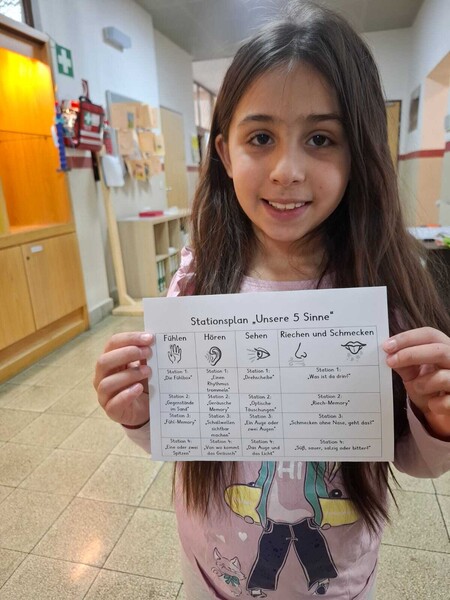 Stationsplan „Unsere 5 Sinne“
Fühlen Hören Sehen Riechen und Schmecken
Station 1:
„Die Fühlbox“
Station 1:
„Einen
Rhythmus
trommeln“
Station 1:
„Drehscheibe“
Station 1:
„Was ist da drin?“
Station 2:
„Gegenstände
im Sand“
Station 2:
„Geräusche
Memory“
Station 2:
„Optische
Täuschungen“
Station 2:
„Riech-Memory“
Station 3:
„Fühl-Memory“
Station 3:
„Schallwellen
sichtbar
machen“
Station 3:
„Ein Auge oder
zwei Augen“
Station 3:
„Schmecken ohne Nase, geht das?“
Station 4:
„Eine oder zwei
Spitzen“
Station 4:
„Von wo kommt
das Geräusch“
Station 4:
„Das Auge und
das Licht“
Station 4:
„Süß, sauer, salzig oder bitter?“